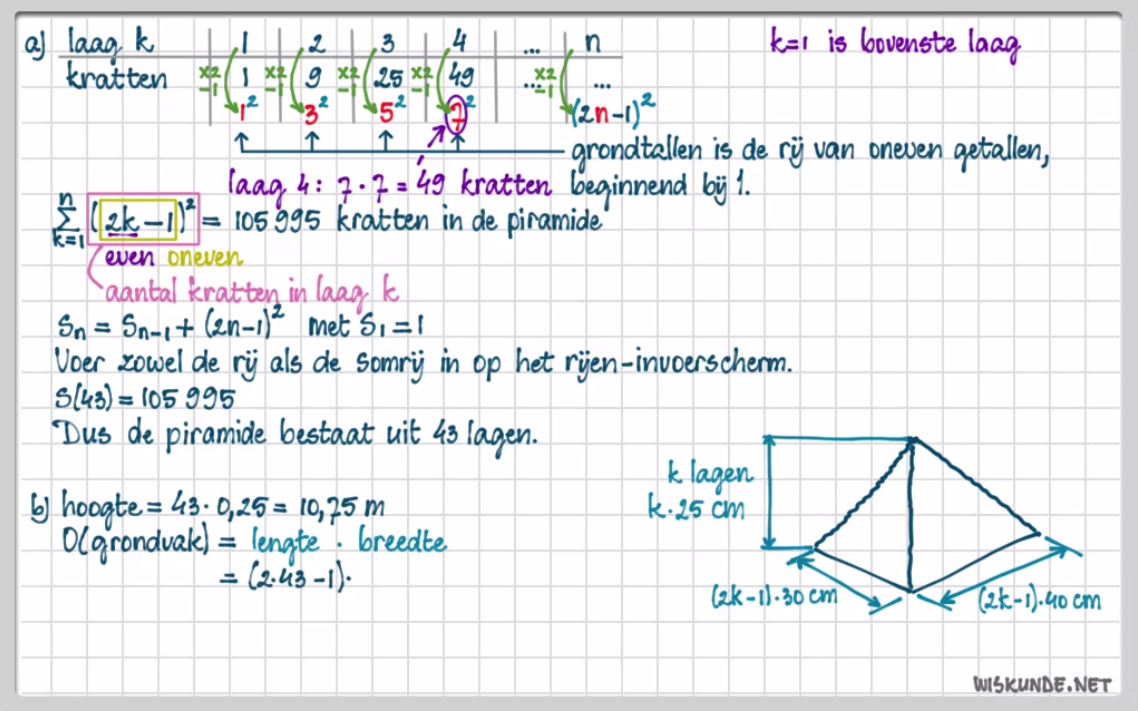 a) laag k 1 2 3 4 ... n
k=1 is bovenste laag
kratten x2 -1 1 x2 -1 9 x2 -1 25 x2 -1 49 ... x2 -1 ...
1² 3² 5² 7² (2n-1)²
grondtallen is de rij van oneven getallen,
laag 4: 7 · 7 = 49 kratten beginnend bij 1.
n ∑ k=1 (2k-1)² = 105 995 kratten in de piramide
even oneven
aantal kratten in laag k
Sn = Sn-1 + (2n-1)² met S1 = 1
Voer zowel de rij als de somrij in op het rijen-invoerscherm.
S(43) = 105 995
Dus de piramide bestaat uit 43 lagen.
b) hoogte = 43 · 0,25 = 10,75 m
O(grondvak) = lengte · breedte
= (2·43-1)·
k lagen
k·25 cm
(2k-1)·30 cm
(2k-1)·40 cm
WISKUNDE.NET